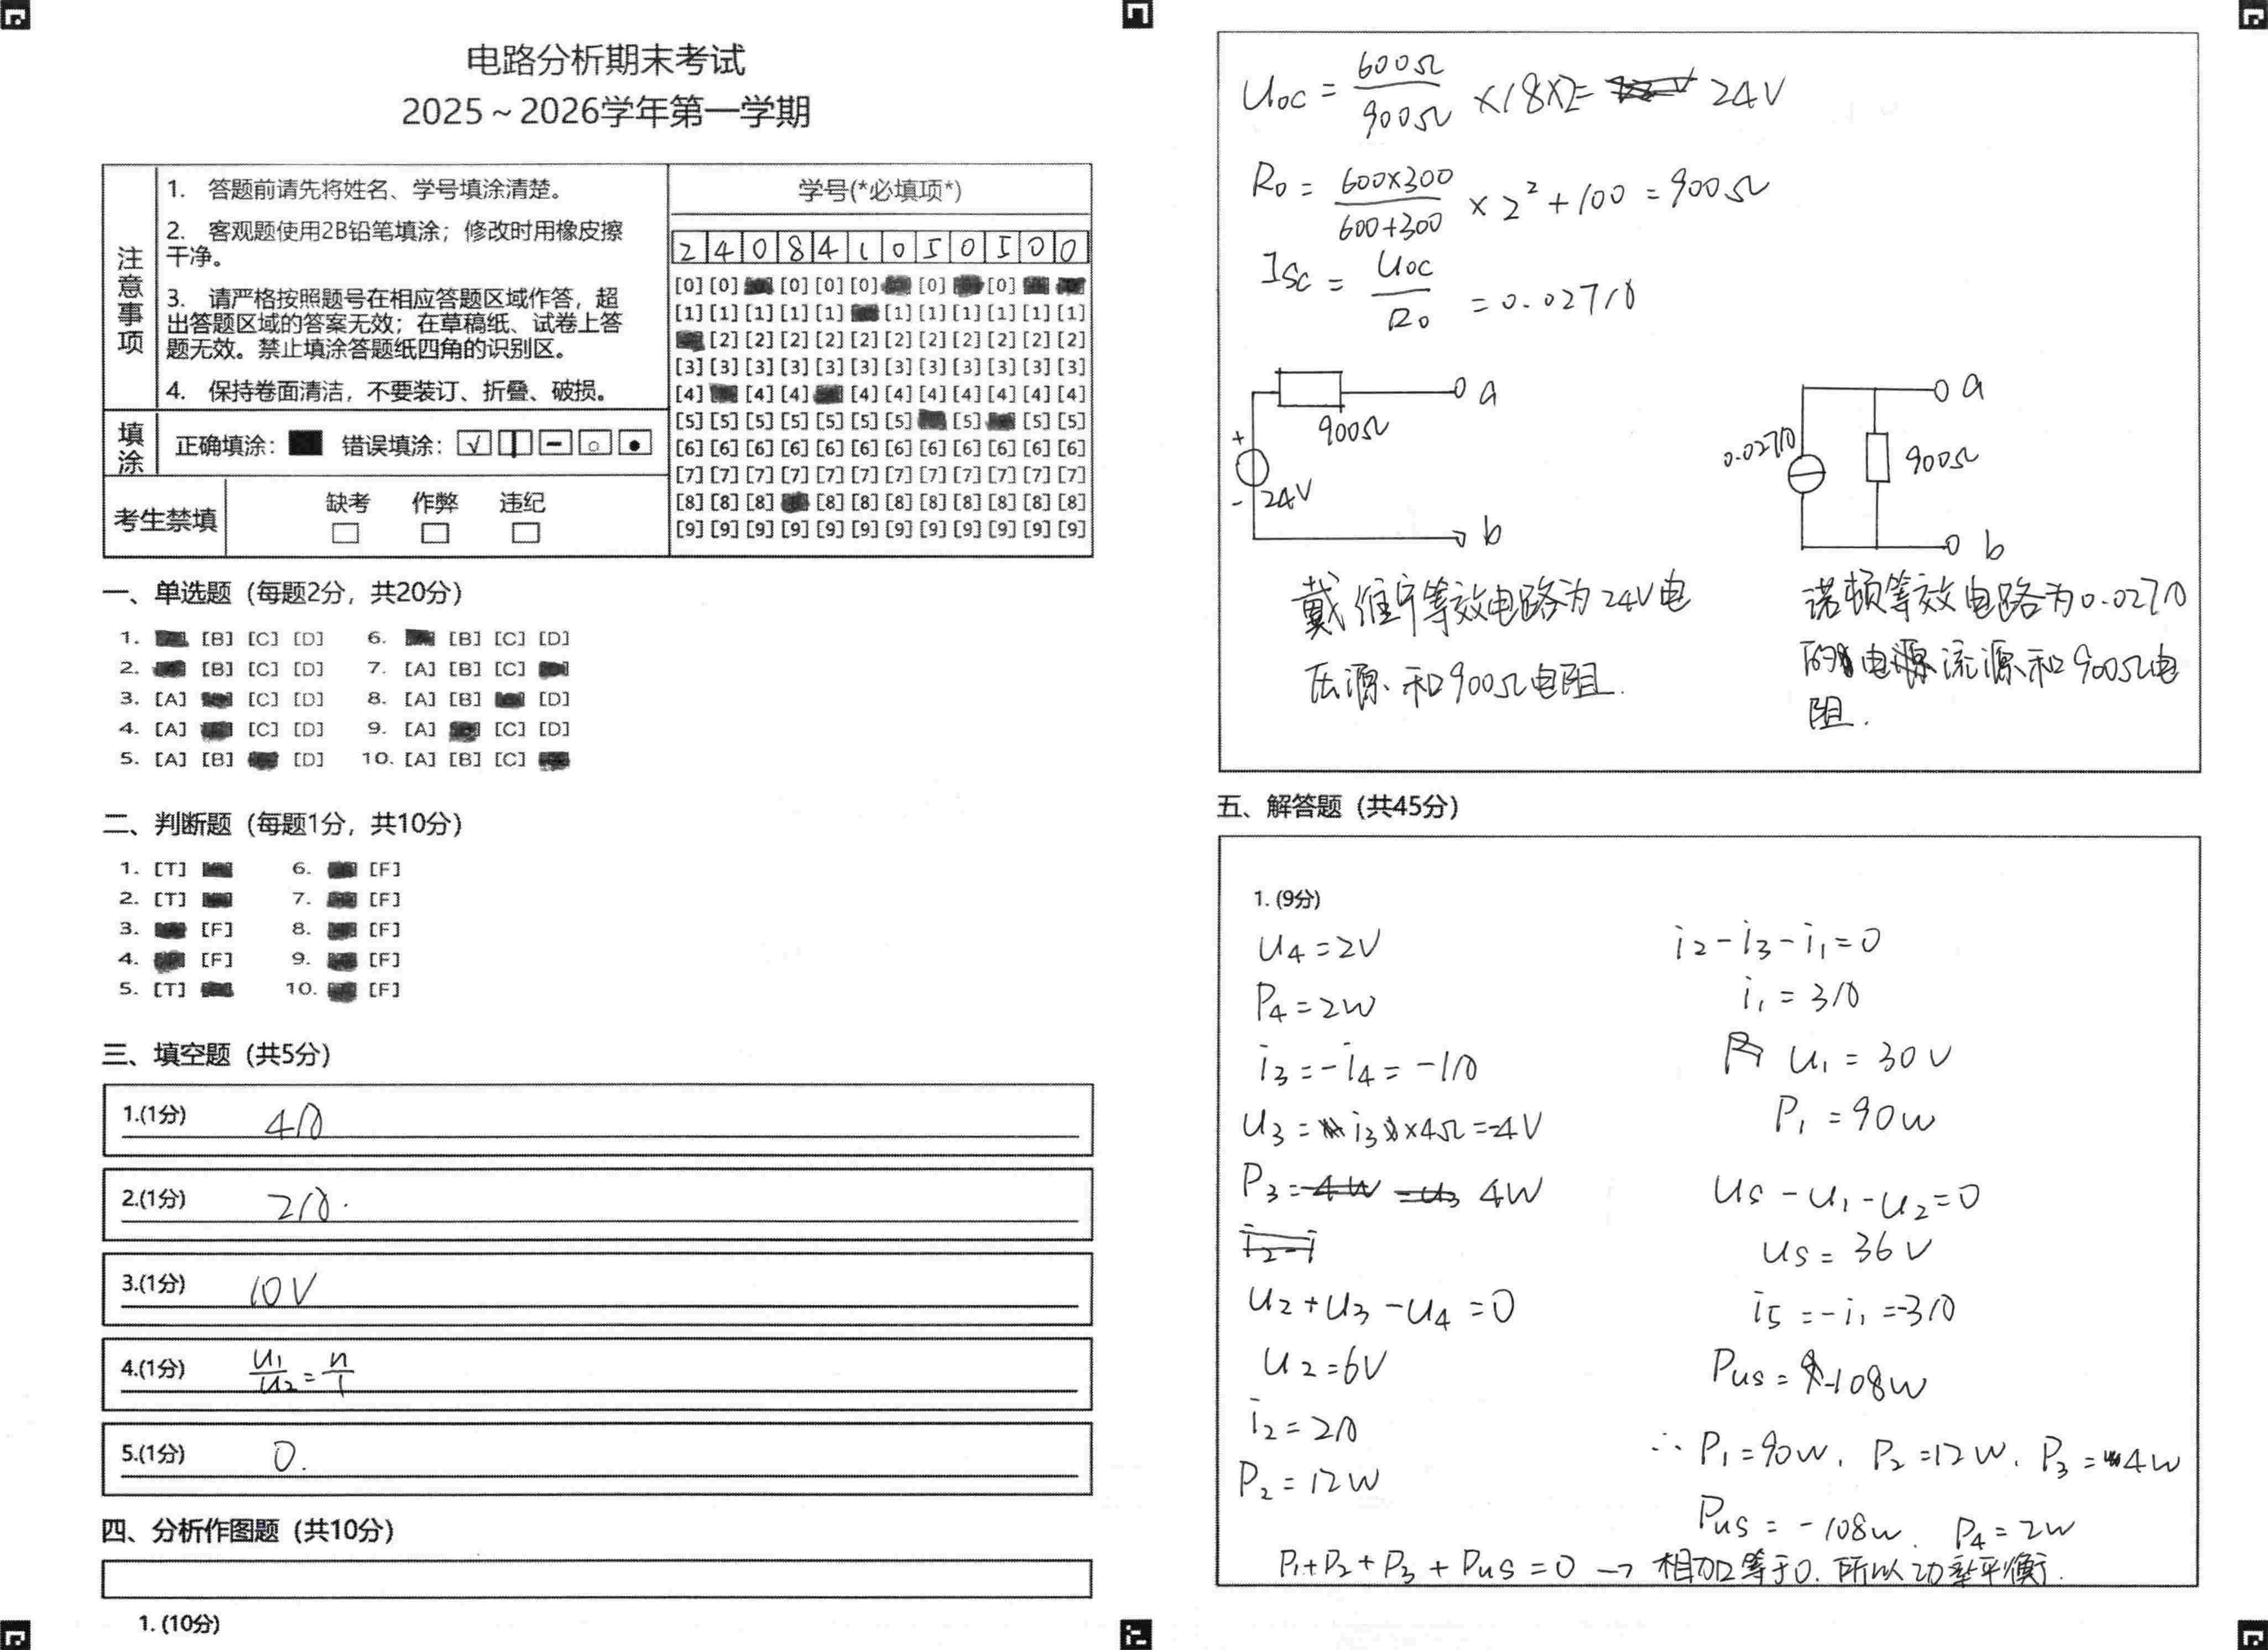 电路分析期末考试
2025～2026学年第一学期
注意事项
1. 答题前请先将姓名、学号填涂清楚。
2. 客观题使用2B铅笔填涂；修改时用橡皮擦
干净。
3. 请严格按照题号在相应答题区域作答，超
出答题区域的答案无效；在草稿纸、试卷上答
题无效。禁止填涂答题纸四角的识别区。
4. 保持卷面清洁，不要装订、折叠、破损。
填涂
正确填涂： 错误填涂： √
考生禁填
缺考 作弊 违纪
学号(*必填项*)
2 4 0 8 4 1 0 5 0 5 0 0
[0] [0] [0] [0] [0] [0] [0]
[1] [1] [1] [1] [1] [1] [1] [1] [1] [1] [1]
[2] [2] [2] [2] [2] [2] [2] [2] [2] [2] [2]
[3] [3] [3] [3] [3] [3] [3] [3] [3] [3] [3] [3]
[4] [4] [4] [4] [4] [4] [4] [4] [4] [4]
[5] [5] [5] [5] [5] [5] [5] [5] [5] [5]
[6] [6] [6] [6] [6] [6] [6] [6] [6] [6] [6] [6]
[7] [7] [7] [7] [7] [7] [7] [7] [7] [7] [7] [7]
[8] [8] [8] [8] [8] [8] [8] [8] [8] [8] [8]
[9] [9] [9] [9] [9] [9] [9] [9] [9] [9] [9] [9]
一、单选题（每题2分，共20分）
1. [B] [C] [D] 6. [B] [C] [D]
2. [B] [C] [D] 7. [A] [B] [C]
3. [A] [C] [D] 8. [A] [B] [D]
4. [A] [C] [D] 9. [A] [C] [D]
5. [A] [B] [D] 10. [A] [B] [C]
二、判断题（每题1分，共10分）
1. [T] 6. [F]
2. [T] 7. [F]
3. [F] 8. [F]
4. [F] 9. [F]
5. [T] 10. [F]
三、填空题（共5分）
1.(1分) 4A
2.(1分) 2A.
3.(1分) 10V
4.(1分) u₁/u₂ = n/1
5.(1分) 0.
四、分析作图题（共10分）
1. (10分)
Uoc = 600Ω/900Ω ×18×2= 24V
R₀ = 600×300/600+300 × 2² + 100 = 900Ω
Isc = Uoc/R₀ = 0.027A
a
900Ω
+
24V
-
b
a
0.027A
900Ω
b
戴维宁等效电路为24V电
压源和900Ω电阻.
诺顿等效电路为0.027A
的电流源和900Ω电
阻.
五、解答题（共45分）
1. (9分)
U₄ = 2V
P₄ = 2W
i₃ = -i₄ = -1A
U₃ = i₃×4Ω=-4V
P₃ = 4W
U₂ + U₃ - U₄ = 0
U₂ = 6V
i₂ = 2A
P₂ = 12W
i₂ - i₃ - i₁ = 0
i₁ = 3A
U₁ = 30V
P₁ = 90W
Us - U₁ - U₂ = 0
Us = 36V
i₅ = -i₁ = -3A
Pus = -108W
∴ P₁ = 90W, P₂ = 12W, P₃ = 4W
Pus = -108W. P₄ = 2W
P₁ + P₂ + P₃ + Pus = 0 → 相加等于0. 所以功率平衡.